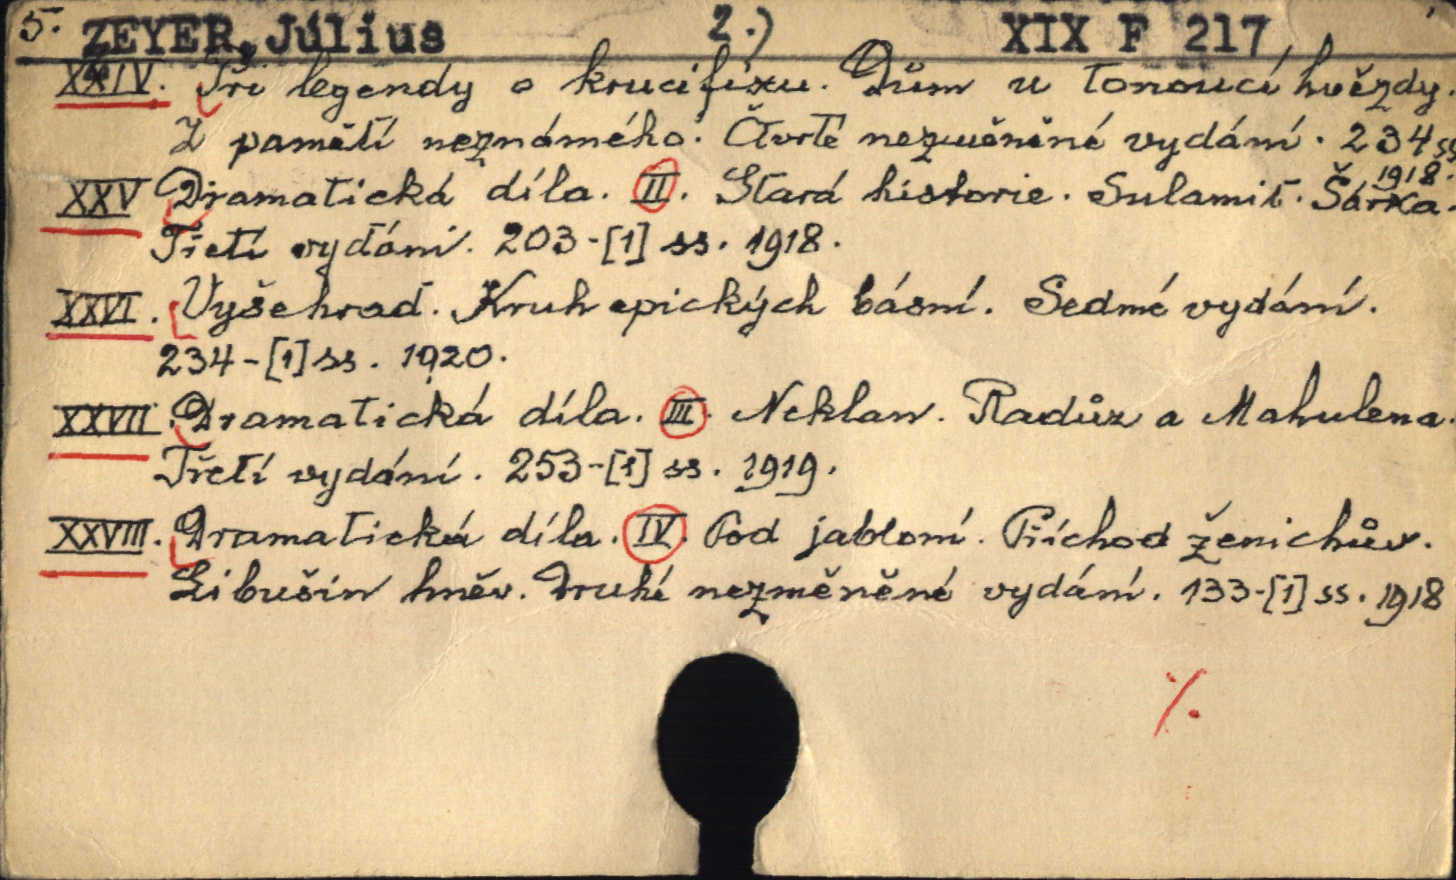 5. ZEYER, Július 2.) XIX F 217
XXIV. Tři legendy o krucifixu. Dům u tonoucí hvězdy.
Z pamětí neznámého. Čtvrté nezměněné vydání. 234 ss
1918.
XXV Dramatická díla. II. Stará historie. Sulamit. Šárka.
Třetí vydání. 203-[1] ss. 1918.
XXVI. Vyšehrad. Kruh epických básní. Sedmé vydání.
234-[1] ss. 1920.
XXVII. Dramatická díla. III. Neklan. Radůz a Mahulena.
Třetí vydání. 253-[1] ss. 1919.
XXVIII. Dramatická díla. IV. Pod jabloní. Příchod ženichův.
Libušin hněv. Druhé nezměněné vydání. 133-[1] ss. 1918
%